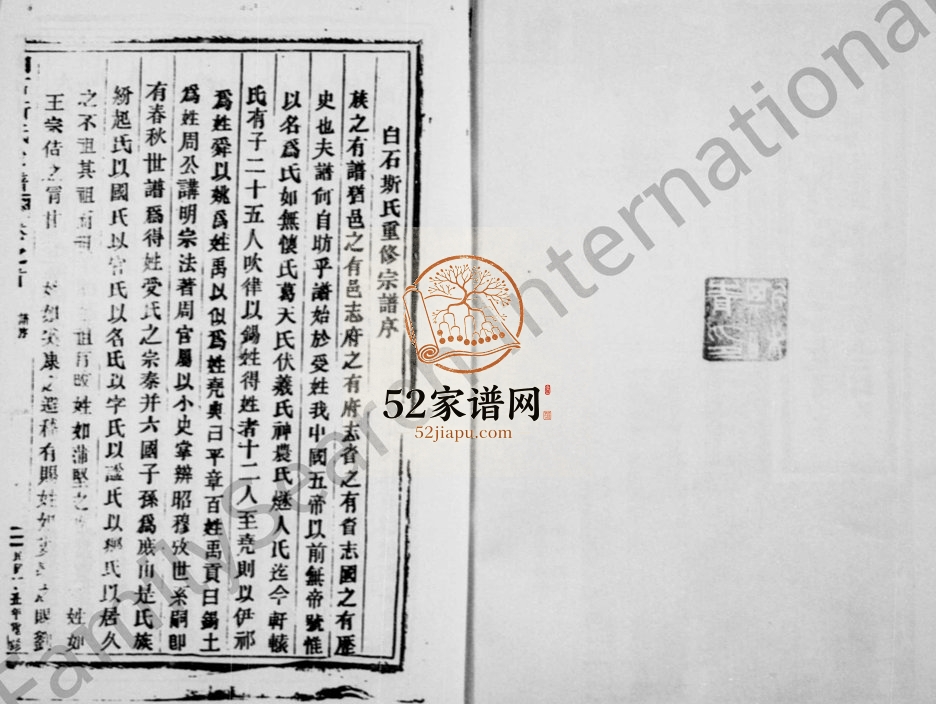 白石斯氏重修宗譜序
族之有譜猶邑之有邑志府之有府志省之有省志國之有歷
史也夫譜何自昉乎譜始於受姓我中國五帝以前無帝號惟
以名爲氏如無懷氏葛天氏伏羲氏神農氏燧人氏迄今軒轅
氏有子二十五人吹律以錫姓得姓者十二人至堯則以伊祁
爲姓舜以姚爲姓禹以姒爲姓堯典曰平章百姓禹貢曰錫土
爲姓周公講明宗法著周官屬以小史掌辨昭穆攷世系嗣即
有春秋世譜爲得姓受氏之宗秦并六國子孫爲庶由是氏族
紛起氏以國氏以官氏以名氏以字氏以謚氏以鄉氏以居久
之不祖其祖而祖 祖有改姓如蒲堅之 姓如
王宗佶之 姓如 有賜姓如 之賜劉
譜序
52家谱网
52jiapu.com
FamilySearch International